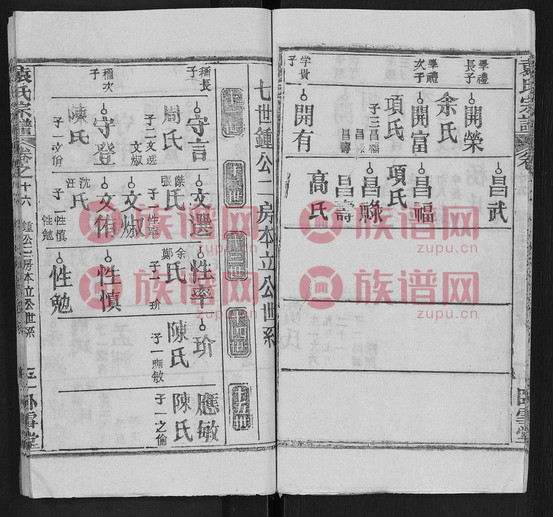 袁氏宗譜
學禮長子
開榮
余氏
昌武
學禮次子
開富
項氏
子三昌福
昌祿
昌壽
昌福
項氏
昌祿
昌壽
高氏
學貴子
開有
七世鍾公二房本立公世系
十一世
十二世
十三世
十四世
十五世
稱長子
守言
周氏
子二文選
文椒
文選
張氏
子一性率
性率
余氏
鄭氏
子一玠
玠
陳氏
子一應敏
應敏
陳氏
子一之倫
文椒
稱次子
守登
陳氏
子一文侑
文侑
沈氏
汪氏
子二性慎
性勉
性慎
性勉
袁氏宗譜
卷之十六
鍾公二房本立公世系
臥雪堂
族谱网
zupu.cn